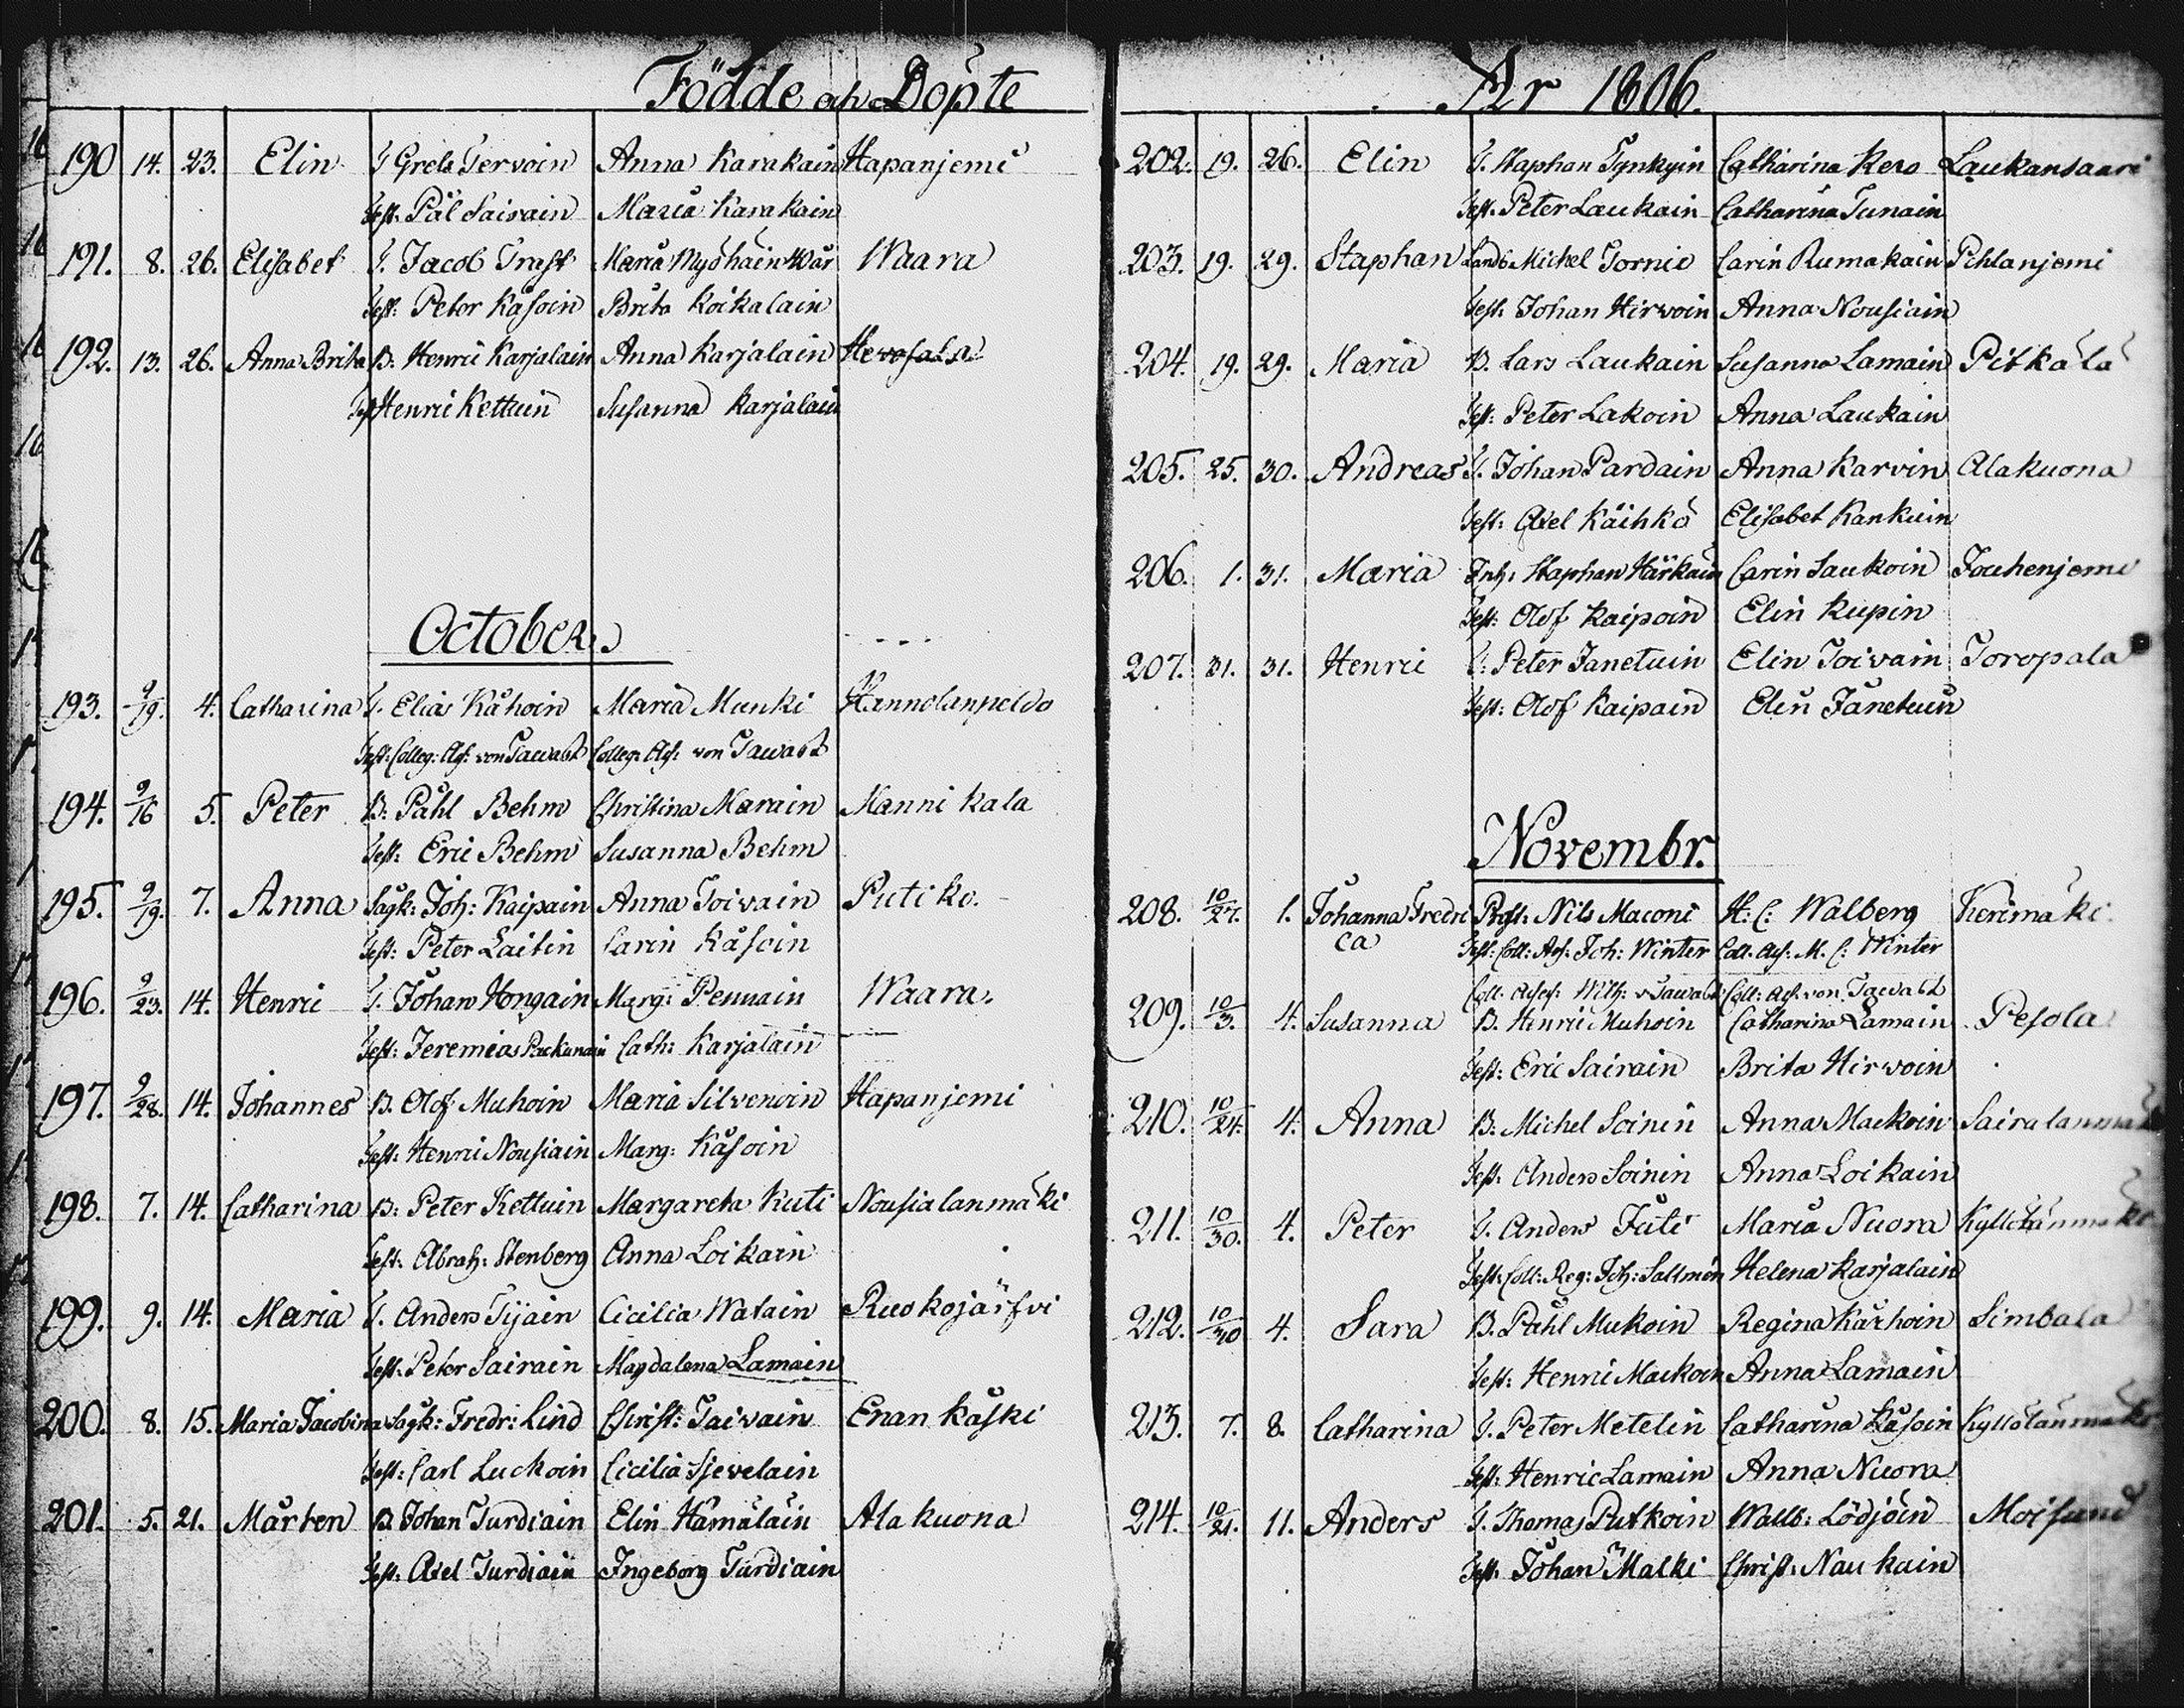 Födde och Döpte
190 14. 23. Elin T Grels Tervoin Anna Karakain Hapanjemi
Test: Pål Sairain Maria Karakain
191. 8. 26. Elisabet T. Jacob Trast Maria Myöhäin 40 år Waara
Test: Petter Käsoin Brita Koikalain
192. 13. 26. Anna Brita B. Henric Karjalain Anna Karjalain Hevosala
Test Henric Kettuin Susanna Karjalain
October.
193. 9/19. 4. Catharina T. Elias Kähoin Maria Munki Hannolanpeldo
Test: Colleg: Ass: von Tawast Colleg: Ass: von Tawast
194. 9/16 5. Peter B: Påhl Behm Christina Marain Mannikala
Test: Eric Behm Susanna Behm
195. 9/19. 7. Anna Sagk: Joh: Kaipain Anna Toivain Putiko.
Test: Peter Laitin Carin Käsoin
196. 9/23. 14. Henric T. Johan Hongain Marg: Pennain Waara.
Test: Jeremias Packanain Cath: Karjalain
197. 9/28. 14. Johannes B. Olof Muhoin Maria Silvenoin Hapanjemi
Test: Henric Nousiain Marg: Käsoin
198. 7. 14. Catharina B: Peter Kettuin Margareta Kuti Nousialanmäki
Test: Abrah: Stenberg Anna Loikain
199. 9. 14. Maria T. Anders Tijain Cicilia Watain Ruokojärfvi
Test: Peter Sairain Magdalena Lamain
200. 8. 15. Maria Jacobina Sagk: Fredr: Lind Christ: Taivain Enankäski
Test: Carl Luckoin Cicilia Sjevelain
201. 5. 21. Mårten B. Johan Turdiain Elin Hämäläin Alakuona
Test: Axel Turdiain Ingeborg Turdiain
År 1806.
202. 19. 26. Elin T. Staphan Tynkyin Catharina Kero Laukansaari
Test: Peter Laukain Catharina Tunain
203. 19. 29. Staphan Landb Michel Tornio Carin Rumakain Pihlanjemi
Test: Johan Hirvoin Anna Nousiain
204. 19. 29. Maria B. Lars Laukain Susanna Lamain Pitkälä
Test: Peter Lakoin Anna Laukain
205. 25. 30. Andreas T. Johan Pardain Anna Karvin Alakuona
Test: Axel Käihkö Elisabet Kankuin
206. 1. 31. Maria Inh: Staphan Härkäin Carin Laukoin Jouhenjemi
Test: Olof Kaipoin Elin Kupin
207. 31. 31. Henric T: Peter Janetuin Elin Toivain Toropala
Test: Olof Kaipain Elin Jänetuin
Novembr.
208. 10/27. 1. Johanna Fredri Prost: Nils Maconi H: C: Walberg Kerimäki.
ca Test: Coll: Ass: Joh: Winter Coll. Ass: M. C: Winter
Coll. Assess: Wilh: v Tawast Coll: Ass: von Tawast
209. 10/3. 4. Susanna B. Henric Muhoin Catharina Lamain Pesola
Test: Eric Sairain Brita Hirvoin
210. 10/24. 4. Anna B: Michel Soinin Anna Mackoin Sairalanmäki
Test: Anders Soinin Anna Loikain
211. 10/30. 4. Peter T. Anders Juti Maria Nuora Kyllölänmäki
Test: Coll: Reg: Joh: Sallmén Helena Karjalain
212. 10/30 4. Sara B. Påhl Mukoin Regina Kärhoin Simbala
Test: Henric Mackoin Anna Lamain
213. 7. 8. Catharina T. Peter Metelin Catharina Käsoin Kyllölänmäki
Test: Henric Lamain Anna Nuora
214. 10/21. 11. Anders T. Thomas Putkoin Walb: Lödjöin Moisund
Test: Johan Malki Christ: Naukain